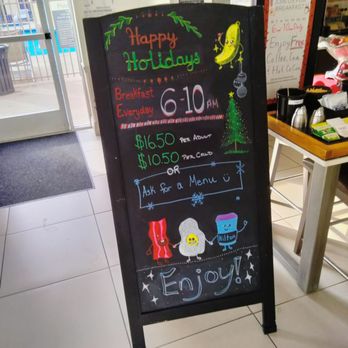 Happy
Holidays
Breakfast
Everyday
6-10 AM
$16.50 Per Adult
$10.50 Per Child
OR
Ask for a Menu
Hilton
Enjoy!